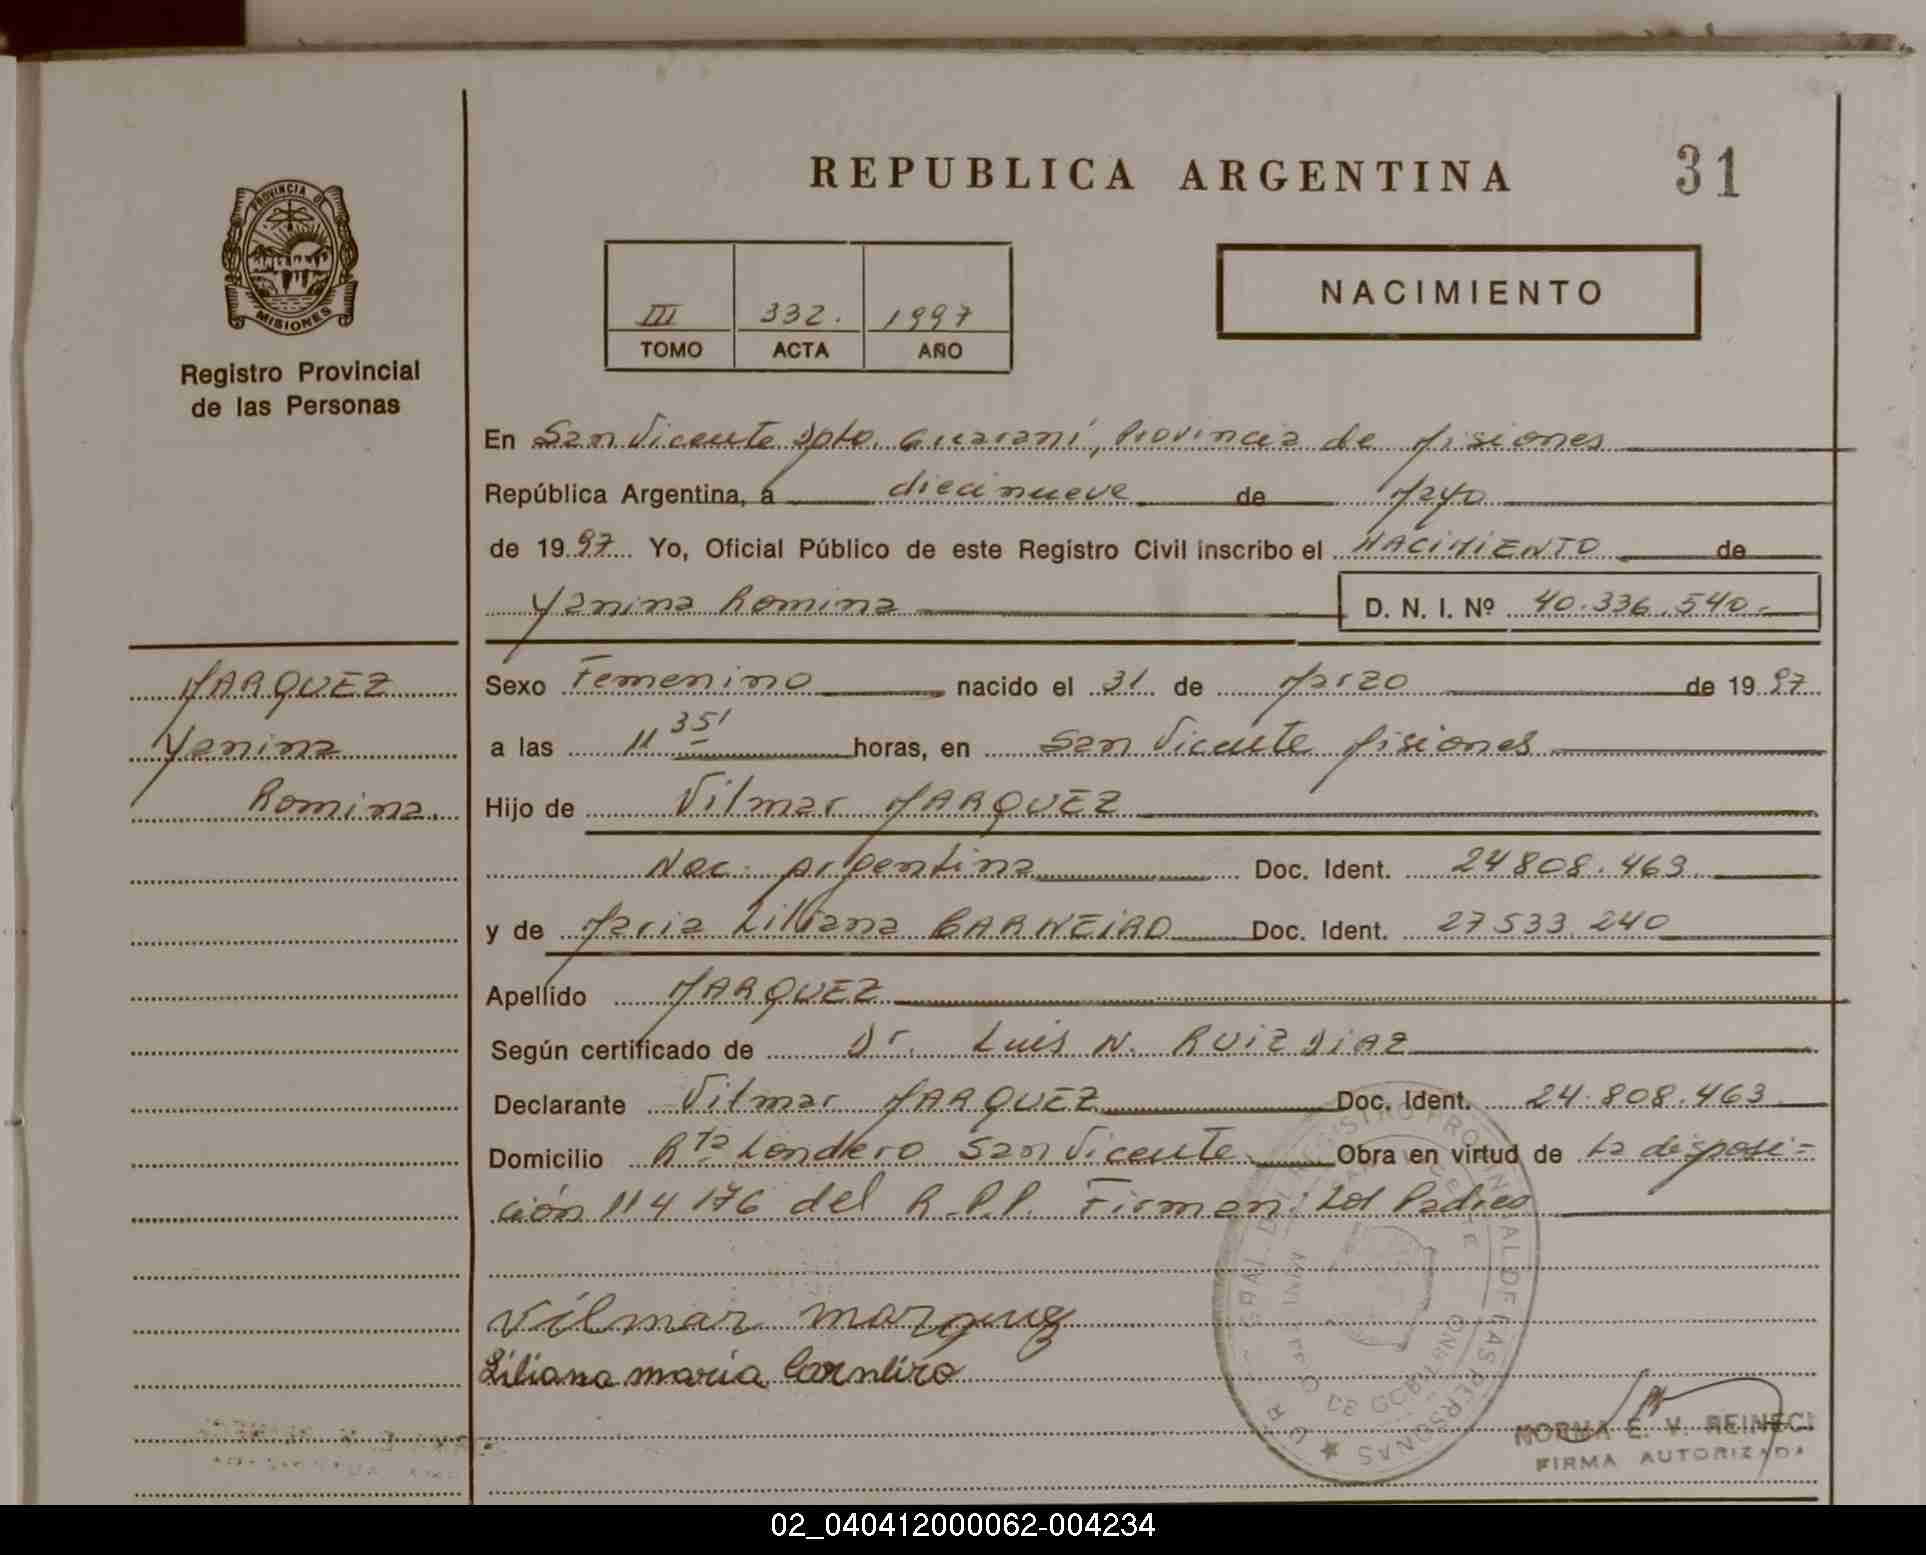 REPUBLICA ARGENTINA
31
PROVINCIA DE
MISIONES
Registro Provincial
de las Personas
III 332. 1997
TOMO ACTA AÑO
NACIMIENTO
En San Vicente Dpto. Guaraní, Provincia de Misiones
República Argentina, a diecinueve de Mayo
de 1997 Yo, Oficial Público de este Registro Civil inscribo el NACIMIENTO de
Yanina Romina D. N. I. Nº 40.336.540.-
MARQUEZ
Yanina
Romina.
Sexo Femenino nacido el 31 de Marzo de 1997
a las 11 35' horas, en San Vicente Misiones
Hijo de Vilmar MARQUEZ
Nac. Argentina Doc. Ident. 24808.463.
y de Maria Liliana CARNEIRO Doc. Ident. 27533.240
Apellido MARQUEZ
Según certificado de Dr. Luis N. RUIZ DIAZ
Declarante Vilmar MARQUEZ Doc. Ident. 24.808.463
Domicilio Rta Londero San Vicente Obra en virtud de La disposi=
ción 114176 del R.P.P. Firman: Los Padres
Vilmar marquez
Liliana maria Carneiro
NORMA E. V. REINECI
FIRMA AUTORIZADA
02_040412000062-004234